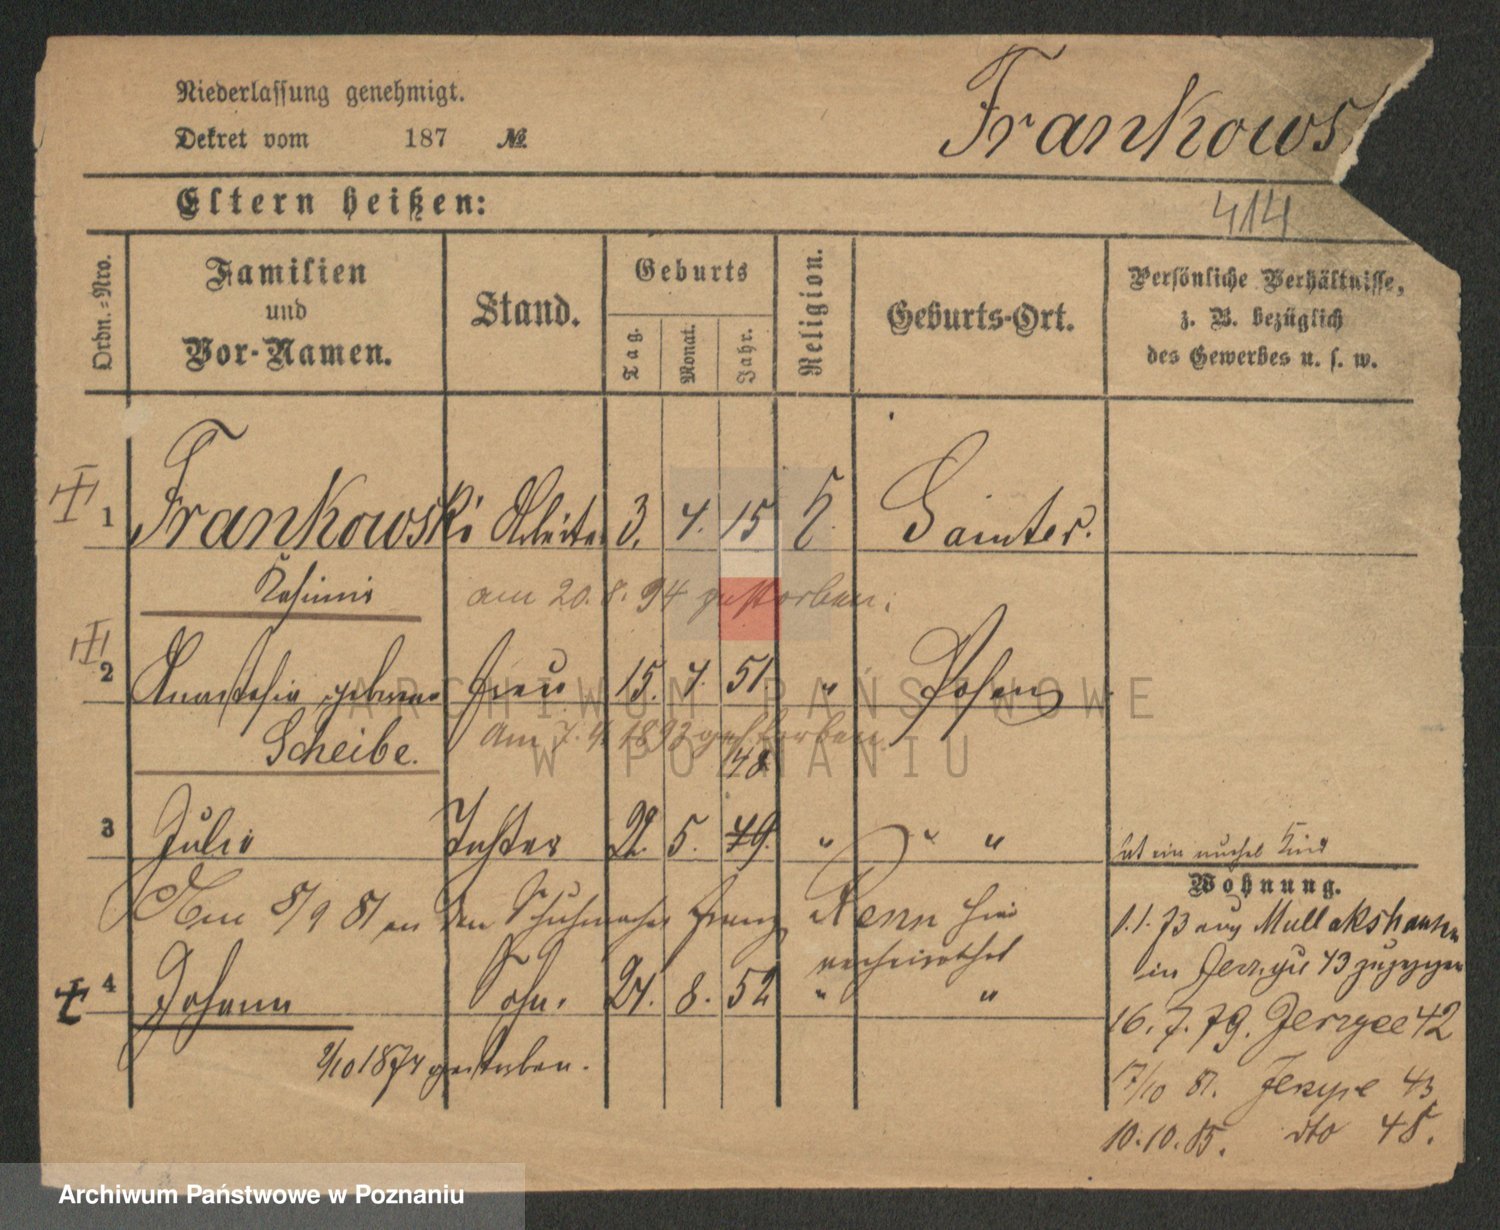 Niederlassung genehmigt.
Dekret vom 187 №
Frankows
Eltern heißen:
414
Ordn.-Nro.
Familien und Vor-Namen.
Stand.
Geburts
Tag.
Monat.
Jahr.
Religion.
Geburts-Ort.
Persönliche Verhältnisse, z. B. bezüglich des Gewerbes u. s. w.
1 Frankowski Arbeiter 3. 4. 15 Samter.
Kasimir am 20.8.94 gestorben.
2 Anastasia geborene Frau 15. 4. 51. " Posen
Scheibe. Am 7. 4. 1893 gestorben.
48.
3 Julie Tochter 22. 5. 49. " " "
hat ein unehel Kind
Wohnung.
Am 8/9 81 an den Schuhmacher Franz Renn hier
verheirathet
1.1.73 aus Mullakshausen
in Jerzyce 43 zugezogen
4 Johann Sohn. 24. 8. 52 " "
16.7.79. Jerzyce 42
/10 1874 gestorben.
17/10 81. Jerzyce 43
10.10.85. dto 48.
ARCHIWUM PAŃSTWOWE
W POZNANIU
Archiwum Państwowe w Poznaniu